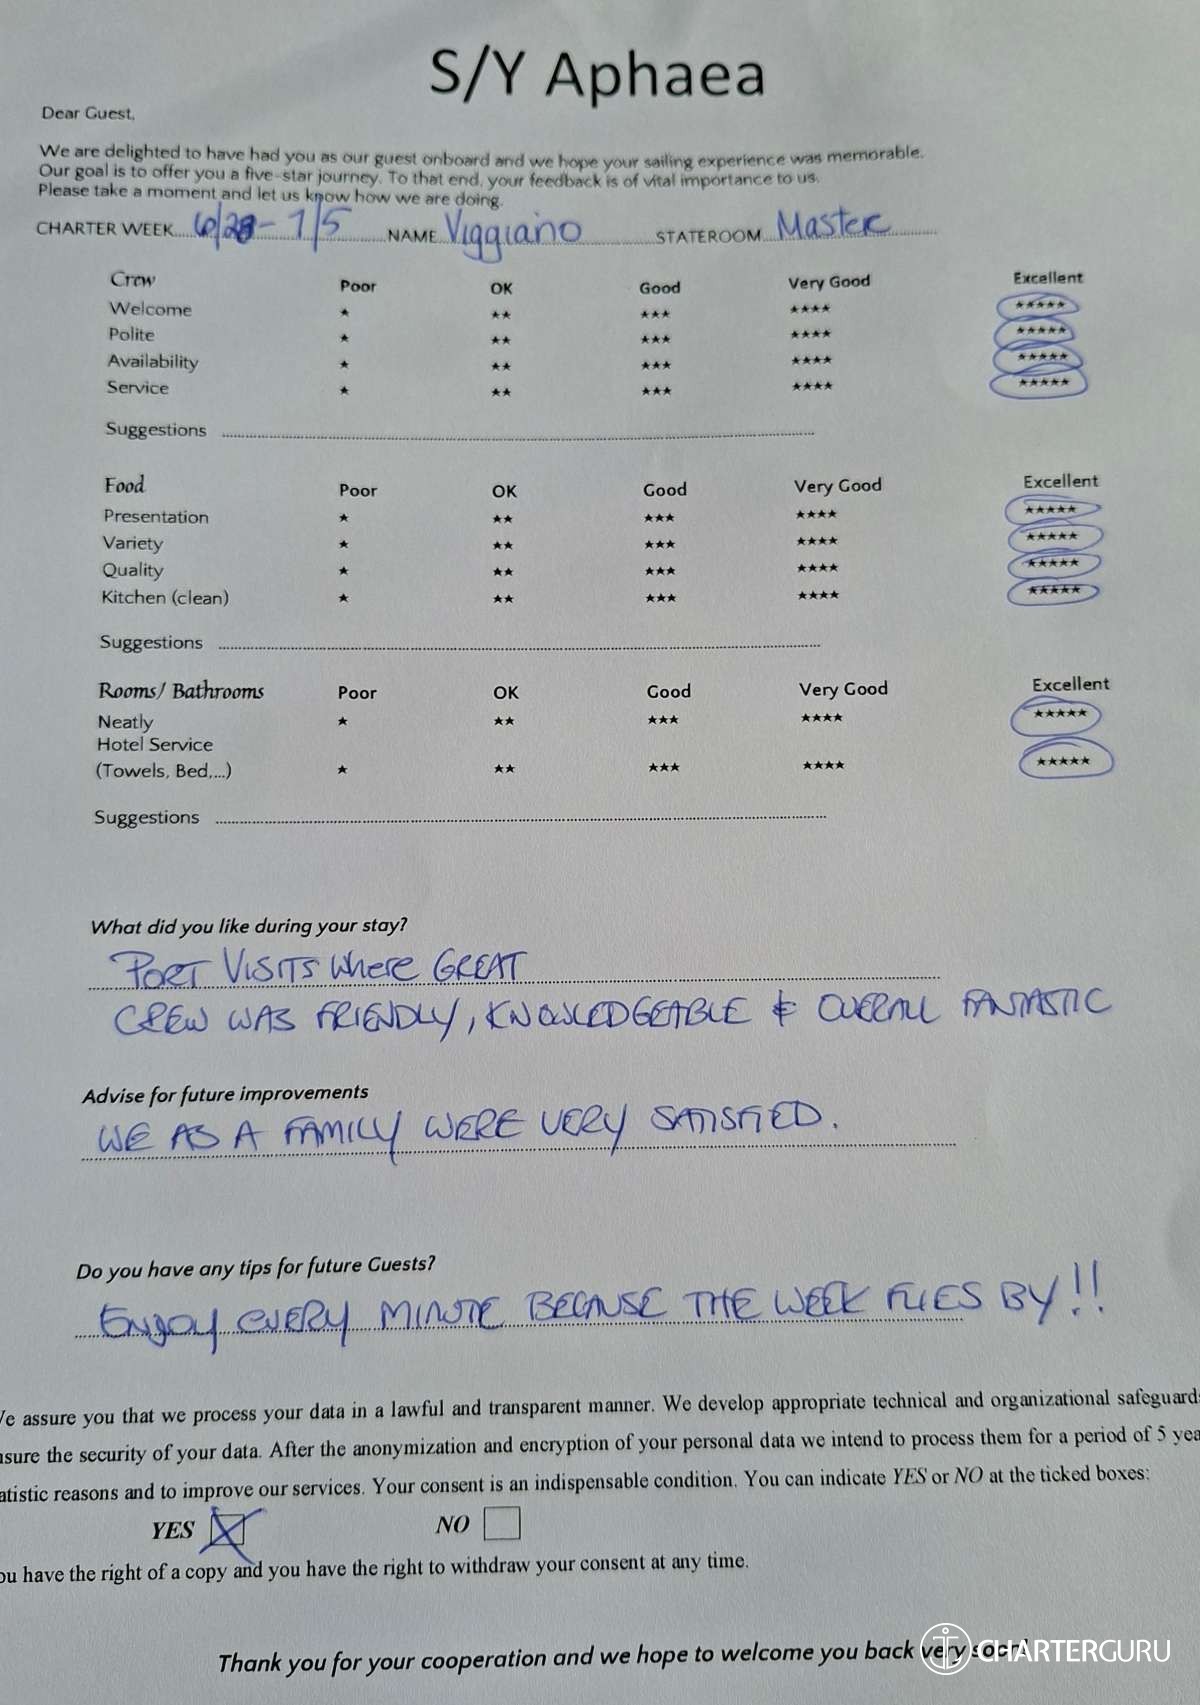 S/Y Aphaea
Dear Guest,
We are delighted to have had you as our guest onboard and we hope your sailing experience was memorable.
Our goal is to offer you a five-star journey. To that end, your feedback is of vital importance to us.
Please take a moment and let us know how we are doing.
CHARTER WEEK 6/28 - 7/5 NAME Viggiano STATEROOM Master
Crew Poor OK Good Very Good Excellent
Welcome ★ ★★ ★★★ ★★★★ ★★★★★
Polite ★ ★★ ★★★ ★★★★ ★★★★★
Availability ★ ★★ ★★★ ★★★★ ★★★★★
Service ★ ★★ ★★★ ★★★★ ★★★★★
Suggestions
Food Poor OK Good Very Good Excellent
Presentation ★ ★★ ★★★ ★★★★ ★★★★★
Variety ★ ★★ ★★★ ★★★★ ★★★★★
Quality ★ ★★ ★★★ ★★★★ ★★★★★
Kitchen (clean) ★ ★★ ★★★ ★★★★ ★★★★★
Suggestions
Rooms/ Bathrooms Poor OK Good Very Good Excellent
Neatly ★ ★★ ★★★ ★★★★ ★★★★★
Hotel Service
(Towels, Bed,...) ★ ★★ ★★★ ★★★★ ★★★★★
Suggestions
What did you like during your stay?
PORT VISITS where GREAT
CREW WAS FRIENDLY, KNOWLEDGEABLE & OVERALL FANTASTIC
Advise for future improvements
WE AS A FAMILY WERE VERY SATISFIED.
Do you have any tips for future Guests?
ENJOY EVERY MINUTE BECAUSE THE WEEK FLIES BY!!
We assure you that we process your data in a lawful and transparent manner. We develop appropriate technical and organizational safeguards
nsure the security of your data. After the anonymization and encryption of your personal data we intend to process them for a period of 5 yea
atistic reasons and to improve our services. Your consent is an indispensable condition. You can indicate YES or NO at the ticked boxes:
YES NO
ou have the right of a copy and you have the right to withdraw your consent at any time.
Thank you for your cooperation and we hope to welcome you back very soon!
CHARTERGURU